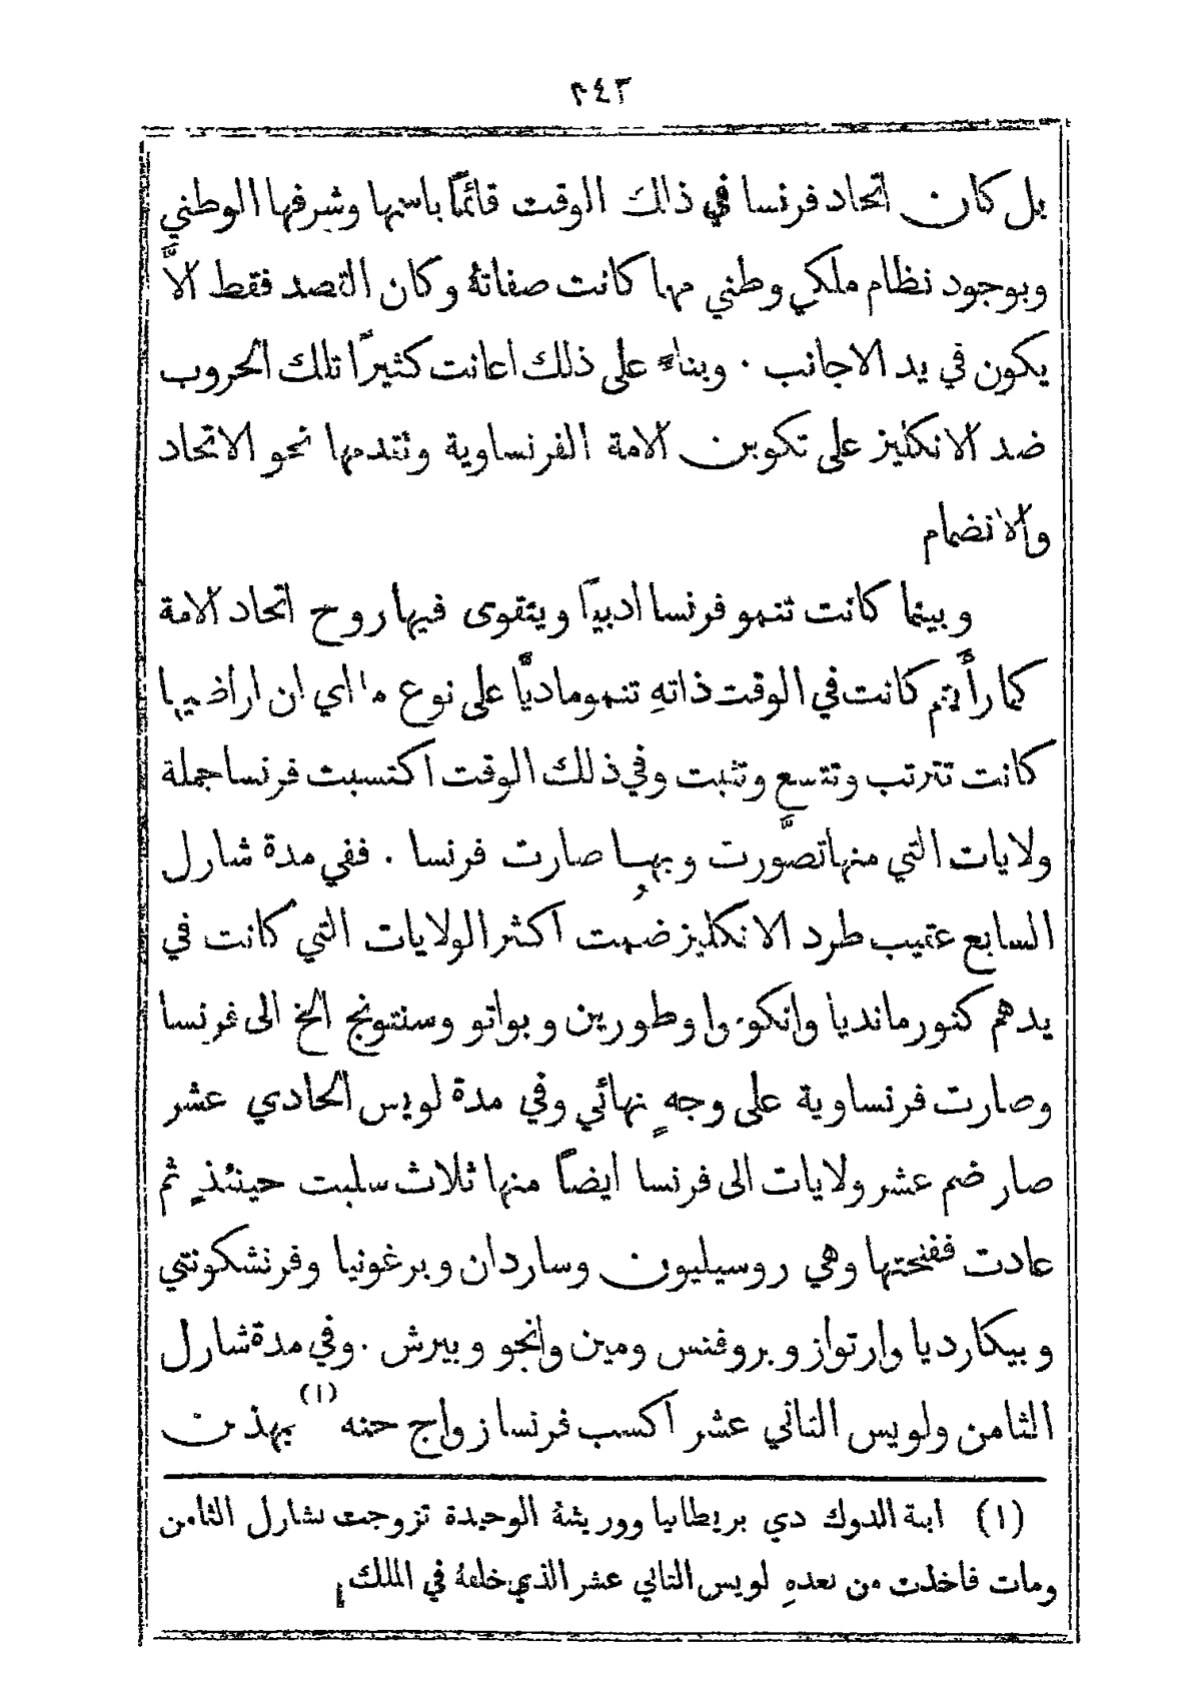 ٢٤٣
بل كان اتحاد فرنسا في ذلك الوقت قائمًا باسمها وشرفها الوطني
وبوجود نظام ملكي وطني مهما كانت صفاتهُ وكان القصد فقط الاَّ
يكون في يد الاجانب . وبناء على ذلك اعانت كثيرًا تلك الحروب
ضد الانكليز على تكوين الامة الفرنساوية وتقدمها نحو الاتحاد
والانضمام
وبينما كانت تنمو فرنسا ادبيًا ويتقوى فيها روح اتحاد الامة
كما رأيتم كانت في الوقت ذاتهِ تنمو ماديًّا على نوع ما اي ان اراضيها
كانت تترتب وتتسع وتثبت وفي ذلك الوقت اكتسبت فرنسا جملة
ولايات التي منها تصوَّرت وبها صارت فرنسا . ففي مدة شارل
السابع عقيب طرد الانكليز ضُمت اكثر الولايات التي كانت في
يدهم كنورمانديا وانكوموا وطورين وبواتو وسنتونج الخ الى فرنسا
وصارت فرنساوية على وجهٍ نهائي وفي مدة لويس الحادي عشر
صار ضم عشر ولايات الى فرنسا ايضًا منها ثلاث سلبت حينئذٍ ثم
عادت ففتحتها وهي روسيليون وساردان وبرغونيا وفرنشكونتي
وبيكارديا وارتواز وبروفنس ومين وانجو وبيرش . وفي مدة شارل
الثامن ولويس الثاني عشر اكسب فرنسا زواج حنه (١) بهذين
(١) ابنة الدوك دي بريطانيا ووريثة الوحيدة تزوجت بشارل الثامن
ومات فاخذت من بعدهِ لويس الثاني عشر الذي خلفهُ في الملك